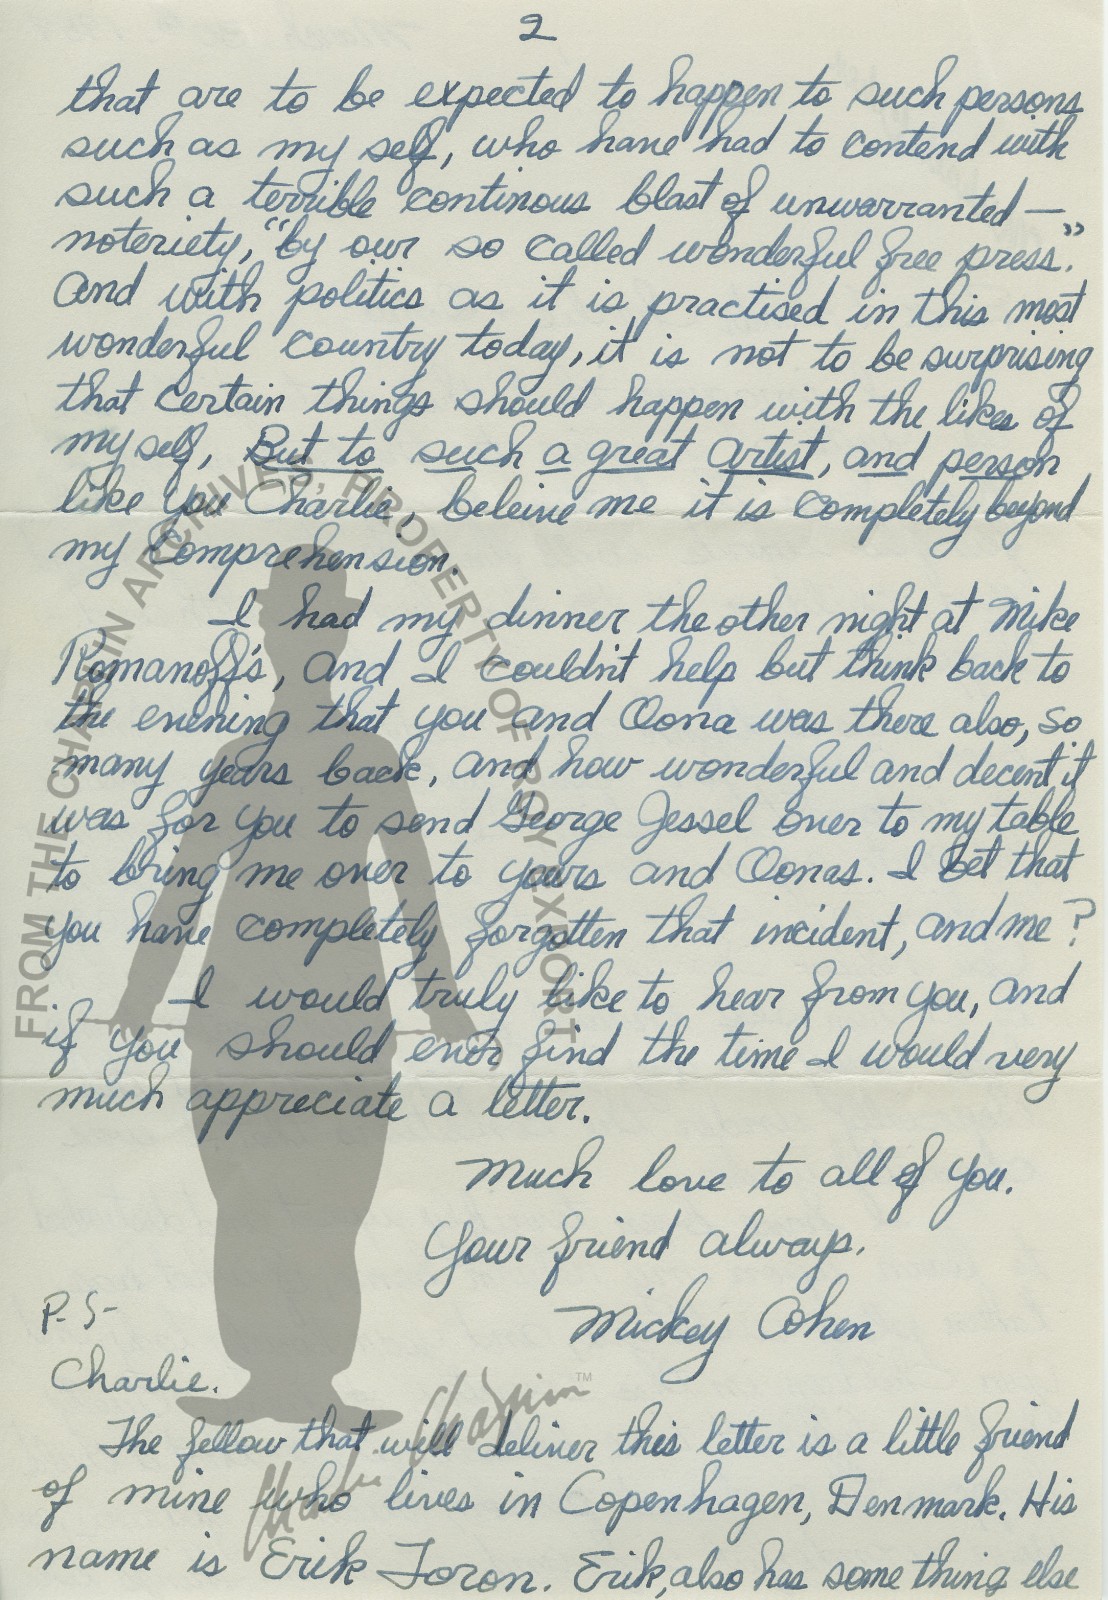 2
that are to be expected to happen to such persons
such as my self, who have had to contend with
such a terrible continous blast of unwarranted —
noteriety, "by our so called wonderful free press."
And with politics as it is practised in this most
wonderful country today, it is not to be surprising
that certain things should happen with the likes of
my self, But to such a great Artist, and person
like you Charlie, beleive me it is completely beyond
my Comprehension.
I had my dinner the other night at Mike
Romanoff's, and I couldn't help but think back to
the evening that you and Oona was there also, so
many years back, and how wonderful and decent it
was for you to send George Jessel over to my table
to bring me over to yours and Oonas. I bet that
you have completely forgotten that incident, and me?
I would truly like to hear from you, and
if you should ever find the time I would very
much appreciate a letter.
Much love to all of you.
Your friend always.
Mickey Cohen
P. S-
Charlie.
The fellow that will deliver this letter is a little friend
of mine who lives in Copenhagen, Denmark. His
name is Erik Toron. Erik, also has some thing else
FROM THE CHAPLIN ARCHIVES, PROPERTY OF ROY EXPORT
Charlie Chaplin™